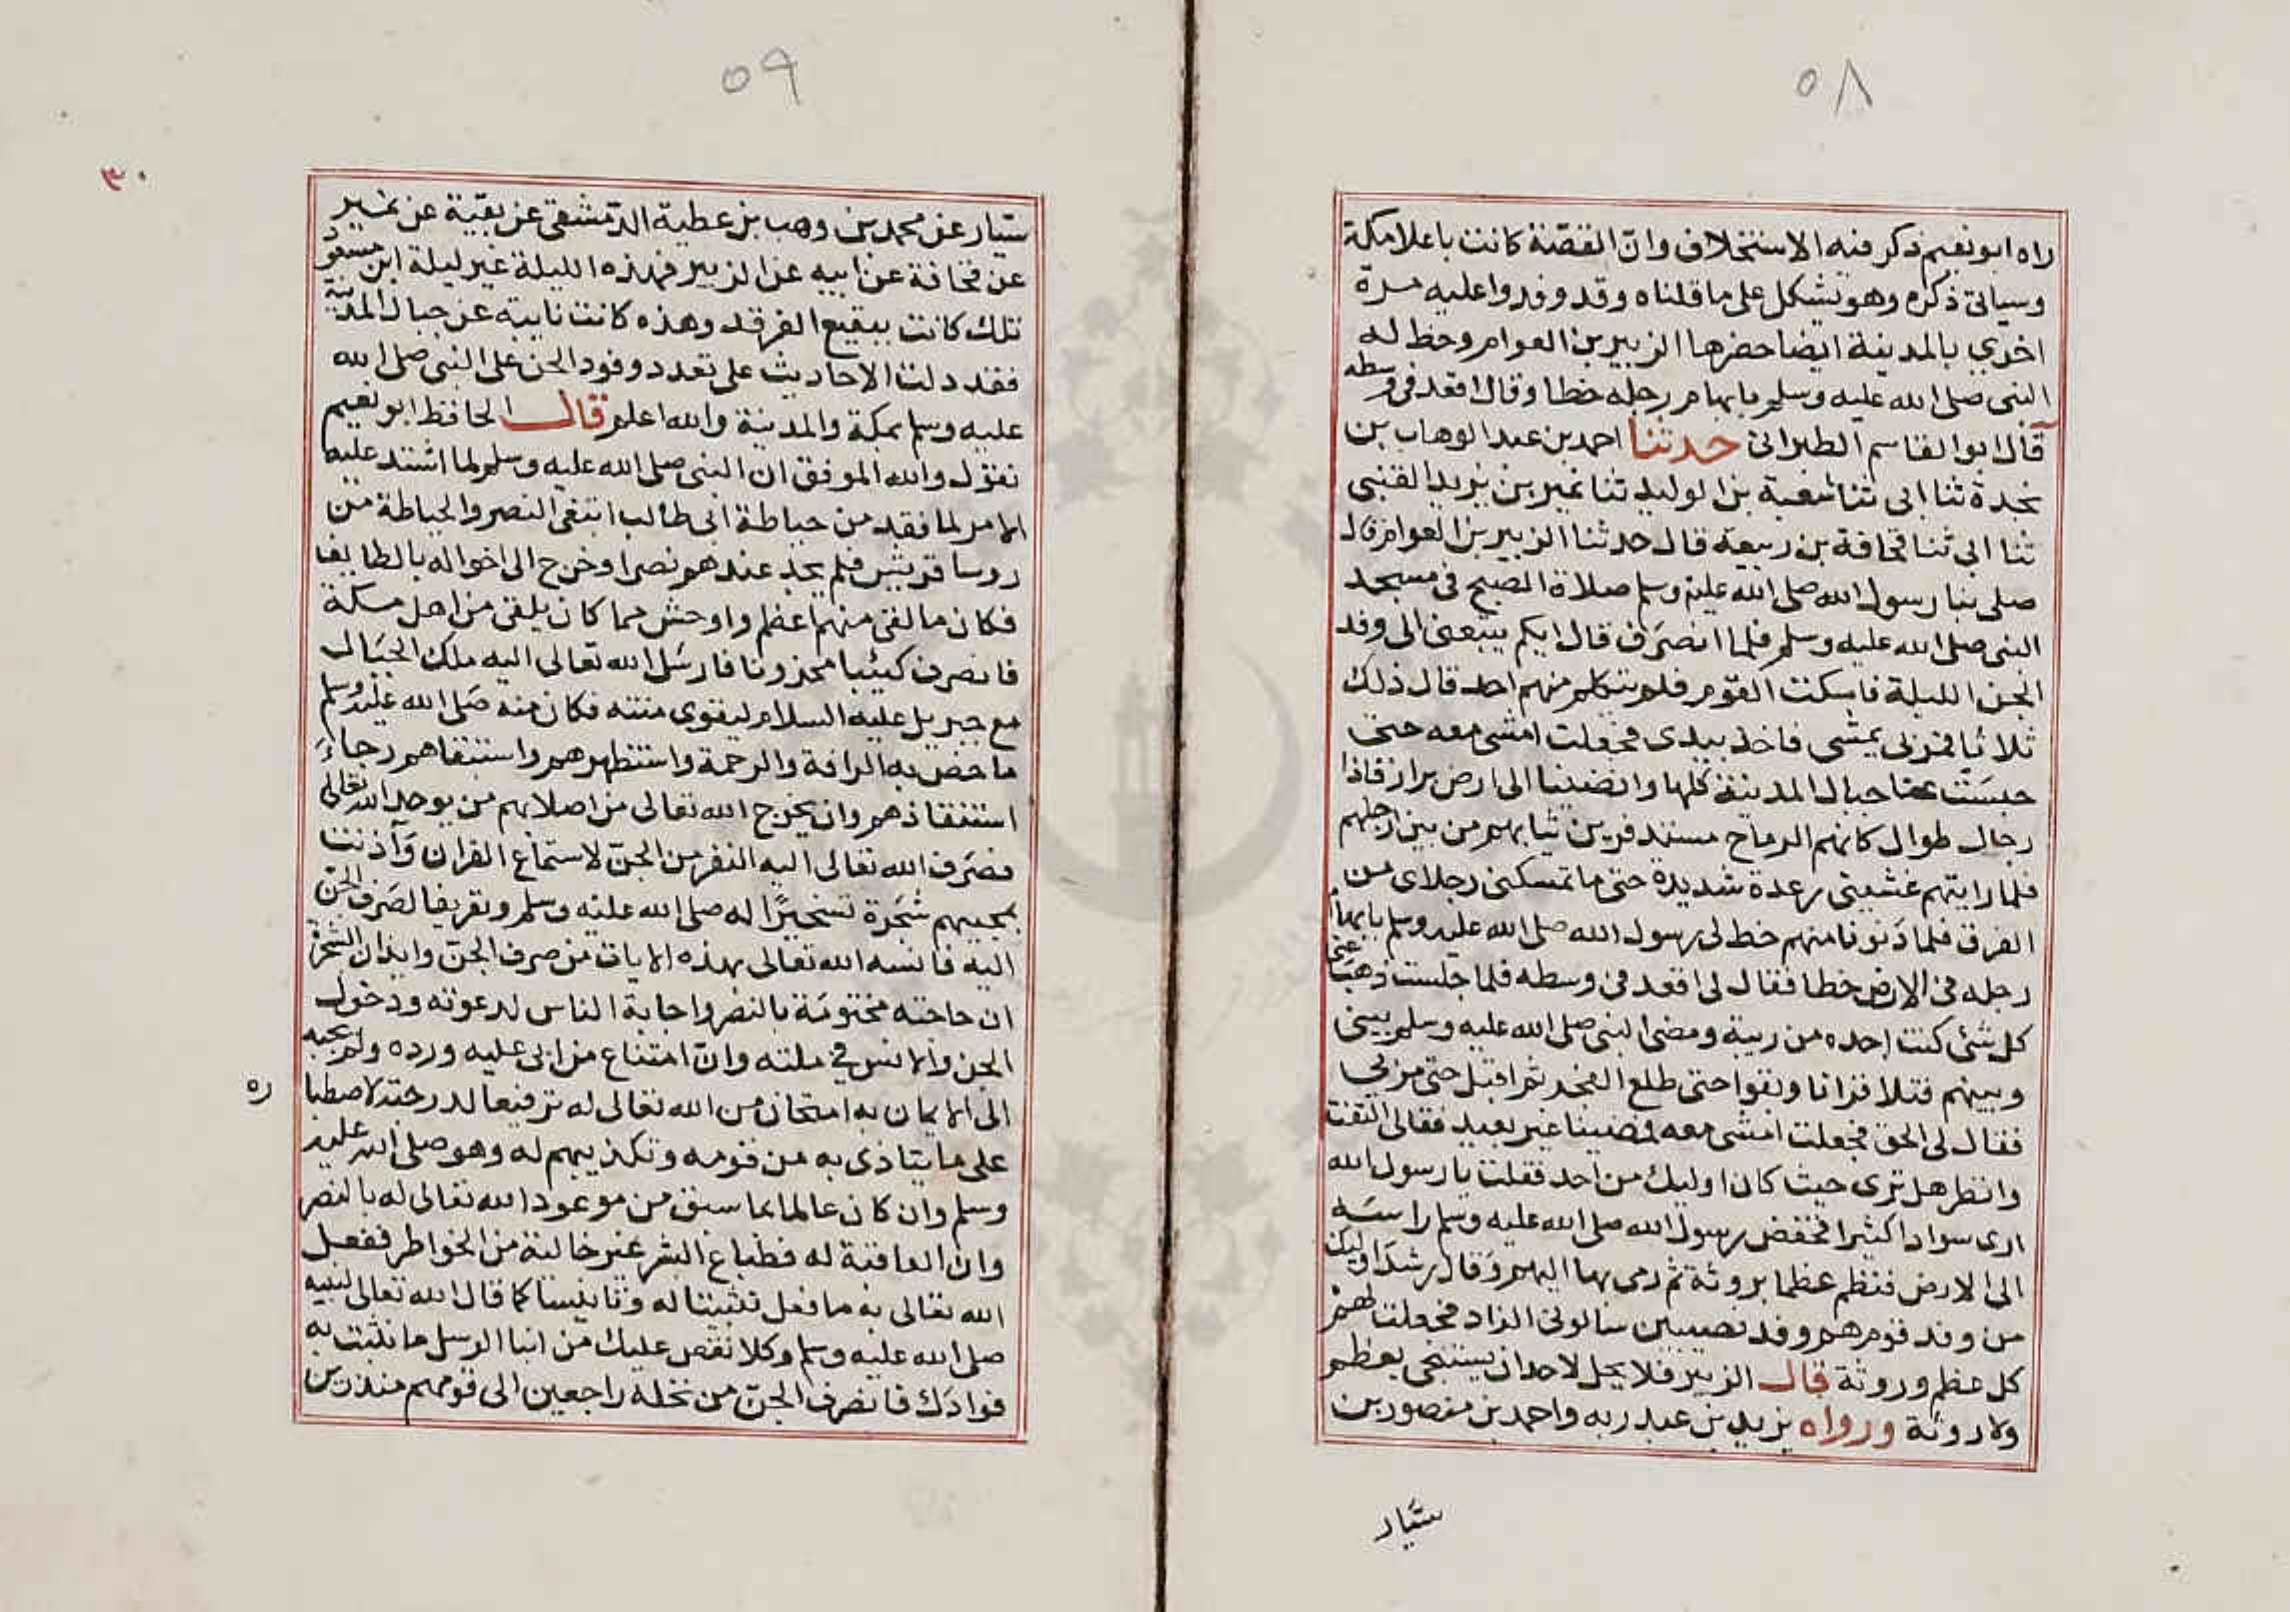 ٥٨
راه ابو نعيم ذكر فيه الاستخلاف وان القصّة كانت باعلا مكة
وسياتى ذكره وهو يشكل على ما قلناه وقد وفدوا عليه مرة
اخري بالمدينة ايضا حضرها الزبير بن العوام وخط له
النبى صلى الله عليه وسلم بابهام رجله خطا وقال اقعد فى وسطه
قال ابو القاسم الطبرانى حدثنا احمد بن عبد الوهاب بن
نجدة ثنا ابى ثنا بقية بن الوليد ثنا نمير بن يزيد القنبى
ثنا ابى ثنا قحافة بن ربيعة قال حدثنا الزبير بن العوام قال
صلى بنا رسول الله صلى الله عليه وسلم صلاة الصبح فى مسجد
النبى صلى الله عليه وسلم فلما انصرف قال ايكم يتبعنى الى وفد
الجن الليلة فاسكت القوم فلم يتكلم منهم احد قال ذلك
ثلاثا فمر بى يمشى فاخذ بيدى فجعلت امشى معه حتى
حبست عنا جبال المدينة كلها وافضينا الى ارض براز فاذا
رجال طوال كانهم الرماح مستدفرين ثيابهم من بين ارجلهم
فلما رايتهم غشيتنى رعدة شديدة حتى ما تمسكنى رجلاى من
الفرق فلما دنونا منهم خط لى رسول الله صلى الله عليه وسلم بابهام
رجله فى الارض خطا فقال لى اقعد فى وسطه فلما جلست ذهب عنى
كل شئ كنت اجده من ريبة ومضى النبى صلى الله عليه وسلم بينى
وبينهم فتلا قرانا وبقوا حتى طلع الفجر ثم اقبل حتى مر بى
فقال لى الحق فجعلت امشى معه فمضينا غير بعيد فقال لى التفت
وانظر هل ترى حيث كان اوليك من احد فقلت يا رسول الله
ارى سوادا كثيرا فخفض رسول الله صلى الله عليه وسلم راسه
الى الارض فنظم عظما بروثة ثم رمى بها اليهم وقال رشد اوليك
من وفد قوم هم وفد نصيبين سالونى الزاد فجعلت لهم
كل عظم وروثة قال الزبير فلا يحل لاحد ان يستنجى بعظم
ولا روثة ورواه يزيد بن عبد ربه واحمد بن منصور بن
سيّار
٥٩
٣٠
سيّار عن محمد بن وهب بن عطية الدمشقى عن بقية عن نمير
عن قحافة عن ابيه عن الزبير فهذه الليلة غير ليلة ابن مسعود
تلك كانت ببقيع الغرقد وهذه كانت نايية عن جبال المدينة
فقد دلت الاحاديث على تعدد وفود الجن على النبى صلى الله
عليه وسلم بمكة والمدينة والله اعلم قال الحافظ ابو نعيم
نقول والله الموفق ان النبى صلى الله عليه وسلم لما اشتد عليه
الامر لما فقد من حياطة ابى طالب ابتغى النصر والحياطة من
روسا قريش فلم يجد عندهم نصرا وخرج الى اخواله بالطايف
فكان ما لقى منهم اعظم واوحش مما كان يلقى من اهل مكة
فانصرف كئيبا محزونا فارسل الله تعالى اليه ملك الجبال
مع جبريل عليه السلام ليقوى منته فكان منه صلى الله عليه وسلم
ما خص به الرافة والرحمة واستظهرهم واستبقاهم رجاء
استنقاذهم وان يخرج الله تعالى من اصلابهم من يوحد الله تعالى
فصرف الله تعالى اليه النفر من الجن لاستماع القران وآذنت
بمجيبهم شجرة تسخيرًا له صلى الله عليه وسلم وتعريفا لصرف الجن
اليه فانسه الله تعالى بهذه الايات من صرف الجن وايذان الشجرة
ان حاجته مختومة بالنصر واجابة الناس لدعوته ودخول
الجن والانس في ملته وان امتناع من ابى عليه ورده ولم يجبه
الى الايمان به امتحان من الله تعالى له ترفيعا لدرجته لاصطبا
ره
على ما يتاذى به من قومه وتكذيبهم له وهو صلى الله عليه
وسلم وان كان عالما بما سبق من موعود الله تعالى له بالنصر
وان العاقبة له فطباع البشر غير خالية من الخواطر ففعل
الله تعالى به ما فعل تثبيتا له وتانيسا كما قال الله تعالى لنبيه
صلى الله عليه وسلم وكلا نقص عليك من انبا الرسل ما نثبت به
فوادك فانصرف الجن من نخلة راجعين الى قومهم منذرين